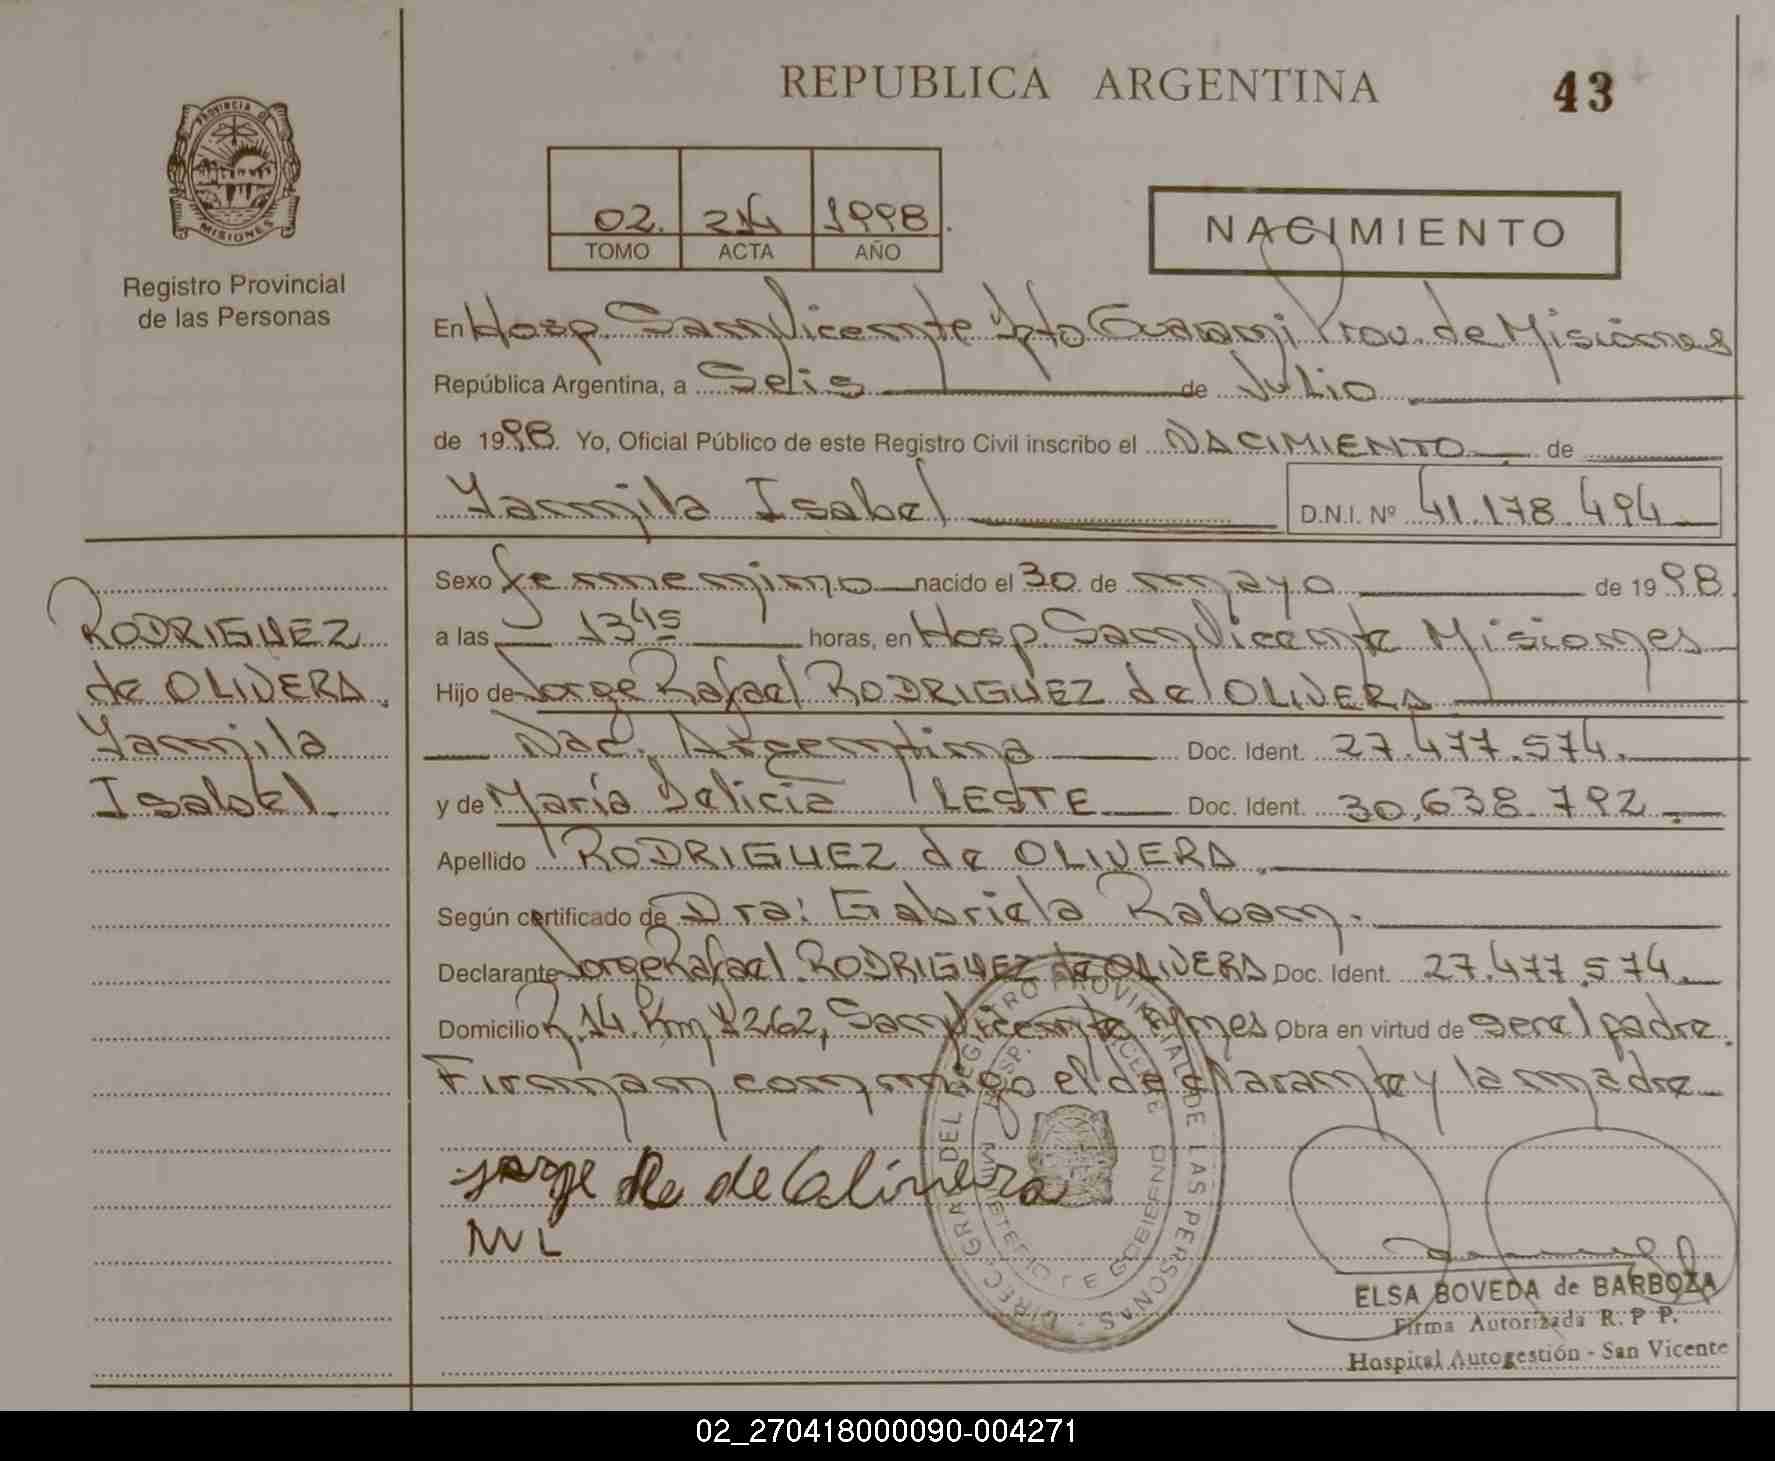 REPUBLICA ARGENTINA
43
PROVINCIA DE
MISIONES
Registro Provincial
de las Personas
02. 214 1998.
TOMO ACTA AÑO
NACIMIENTO
En Hosp. San Vicente Dpto Guarani Prov. de Misiones
República Argentina, a Seis de Julio
de 1998. Yo, Oficial Público de este Registro Civil inscribo el NACIMIENTO de
Yamila Isabel D.N.I. Nº 41.178.494
Sexo femenino nacido el 30 de mayo de 1998
a las 13 45 horas, en Hosp. San Vicente Misiones
Hijo de Jorge Rafael RODRIGUEZ de OLIVERA
Nac. Argentina Doc. Ident. 27.477.574.
y de María Delicia LESTE Doc. Ident. 30.638.792.
Apellido RODRIGUEZ de OLIVERA
Según certificado de Dra: Gabriela Raban.
Declarante Jorge Rafael RODRIGUEZ de OLIVERA Doc. Ident. 27.477.574.
Domicilio R.14. Km 1262, San Vicente Mnes Obra en virtud de ser el padre.
Firman conmigo el declarante y la madre
RODRIGUEZ
de OLIVERA.
Yamila
Isabel.
Jorge de Olivera
DIREC. GRAL. DEL REGISTRO PROVINCIAL DE LAS PERSONAS -
HOSP. VICENTE
MINISTERIO DE GOBIERNO
ELSA BOVEDA de BARBOZA
Firma Autorizada R. P. P.
Hospital Autogestión - San Vicente
02_270418000090-004271